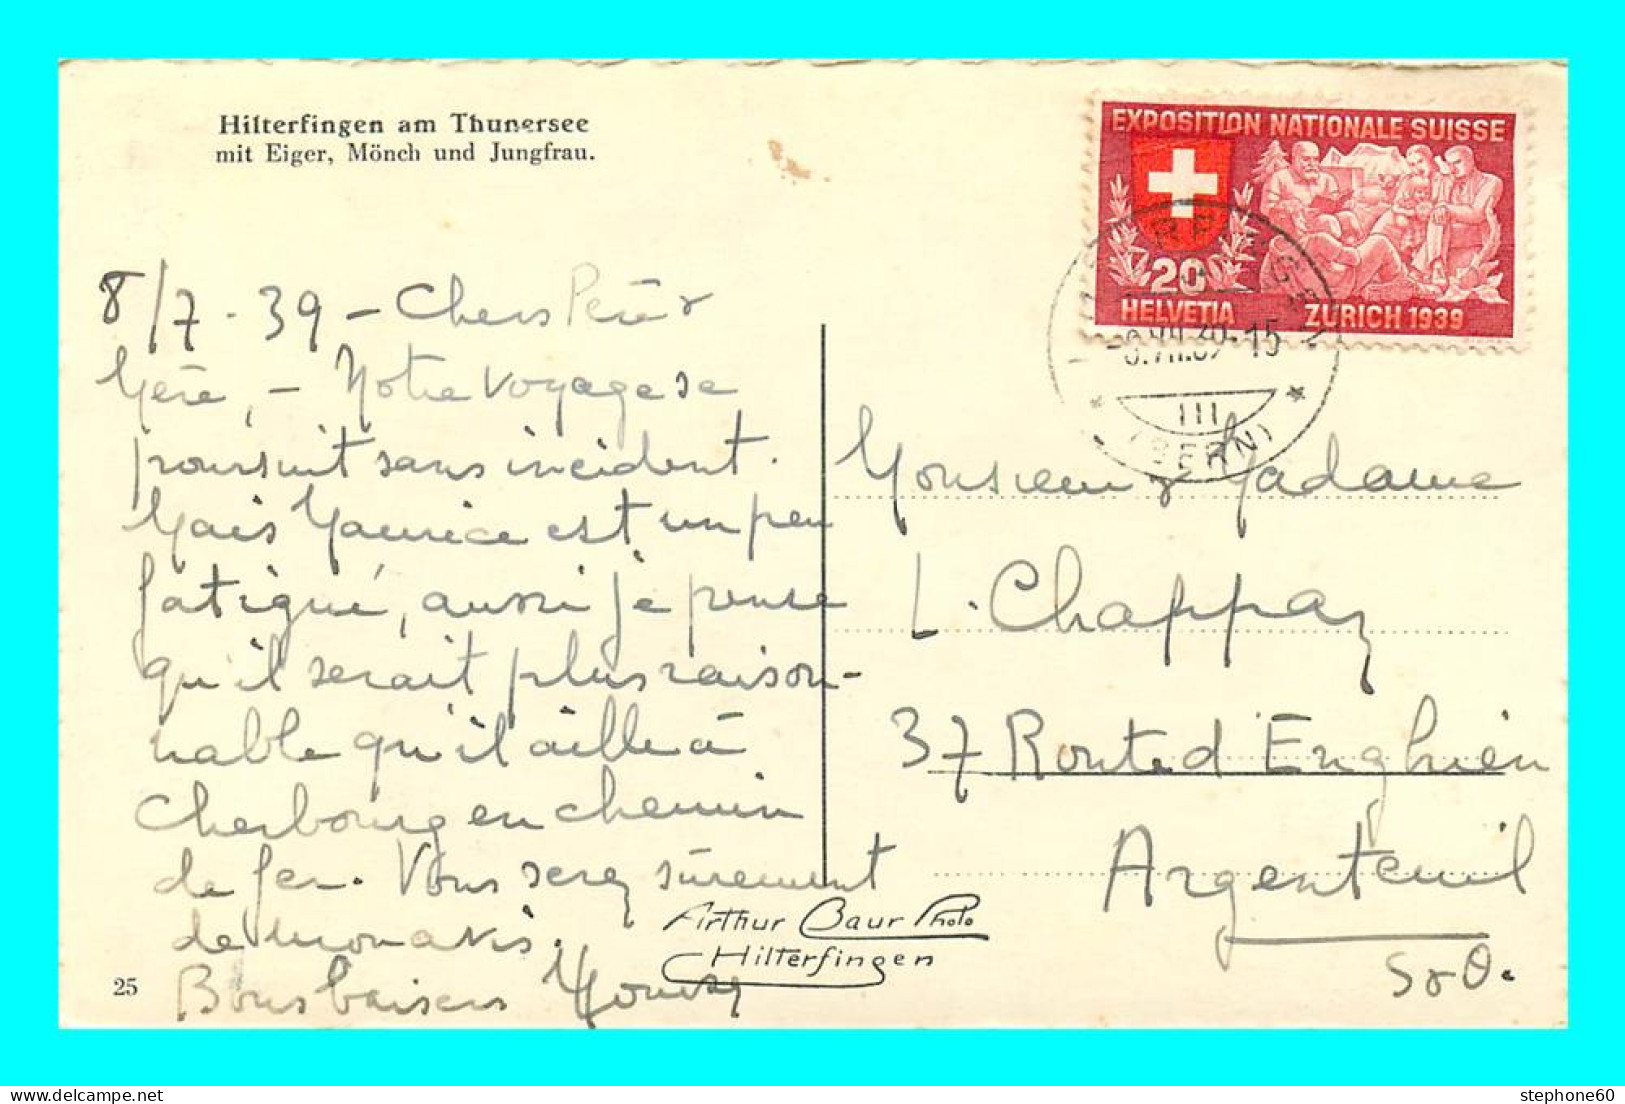 Hilterfingen am Thunersee
mit Eiger, Mönch und Jungfrau.
EXPOSITION NATIONALE SUISSE
20
HELVETIA ZURICH 1939
-9.VII.39-15
III
(BERN)
8/7-39 - Chers Père &
Mère, - Notre voyage se
poursuit sans incident.
Mais Maurice est un peu
fatigué, aussi je pense
qu'il serait plus raison-
nable qu'il aille à
Cherbourg en chemin
de fer. Vous serez sûrement
de mon avis.
Bons baisers
Monsieur & Madame
L. Chappaz
37 Route d'Enghien
Argenteuil
S & O.
Arthur Baur Photo
Hilterfingen
25
stephone60